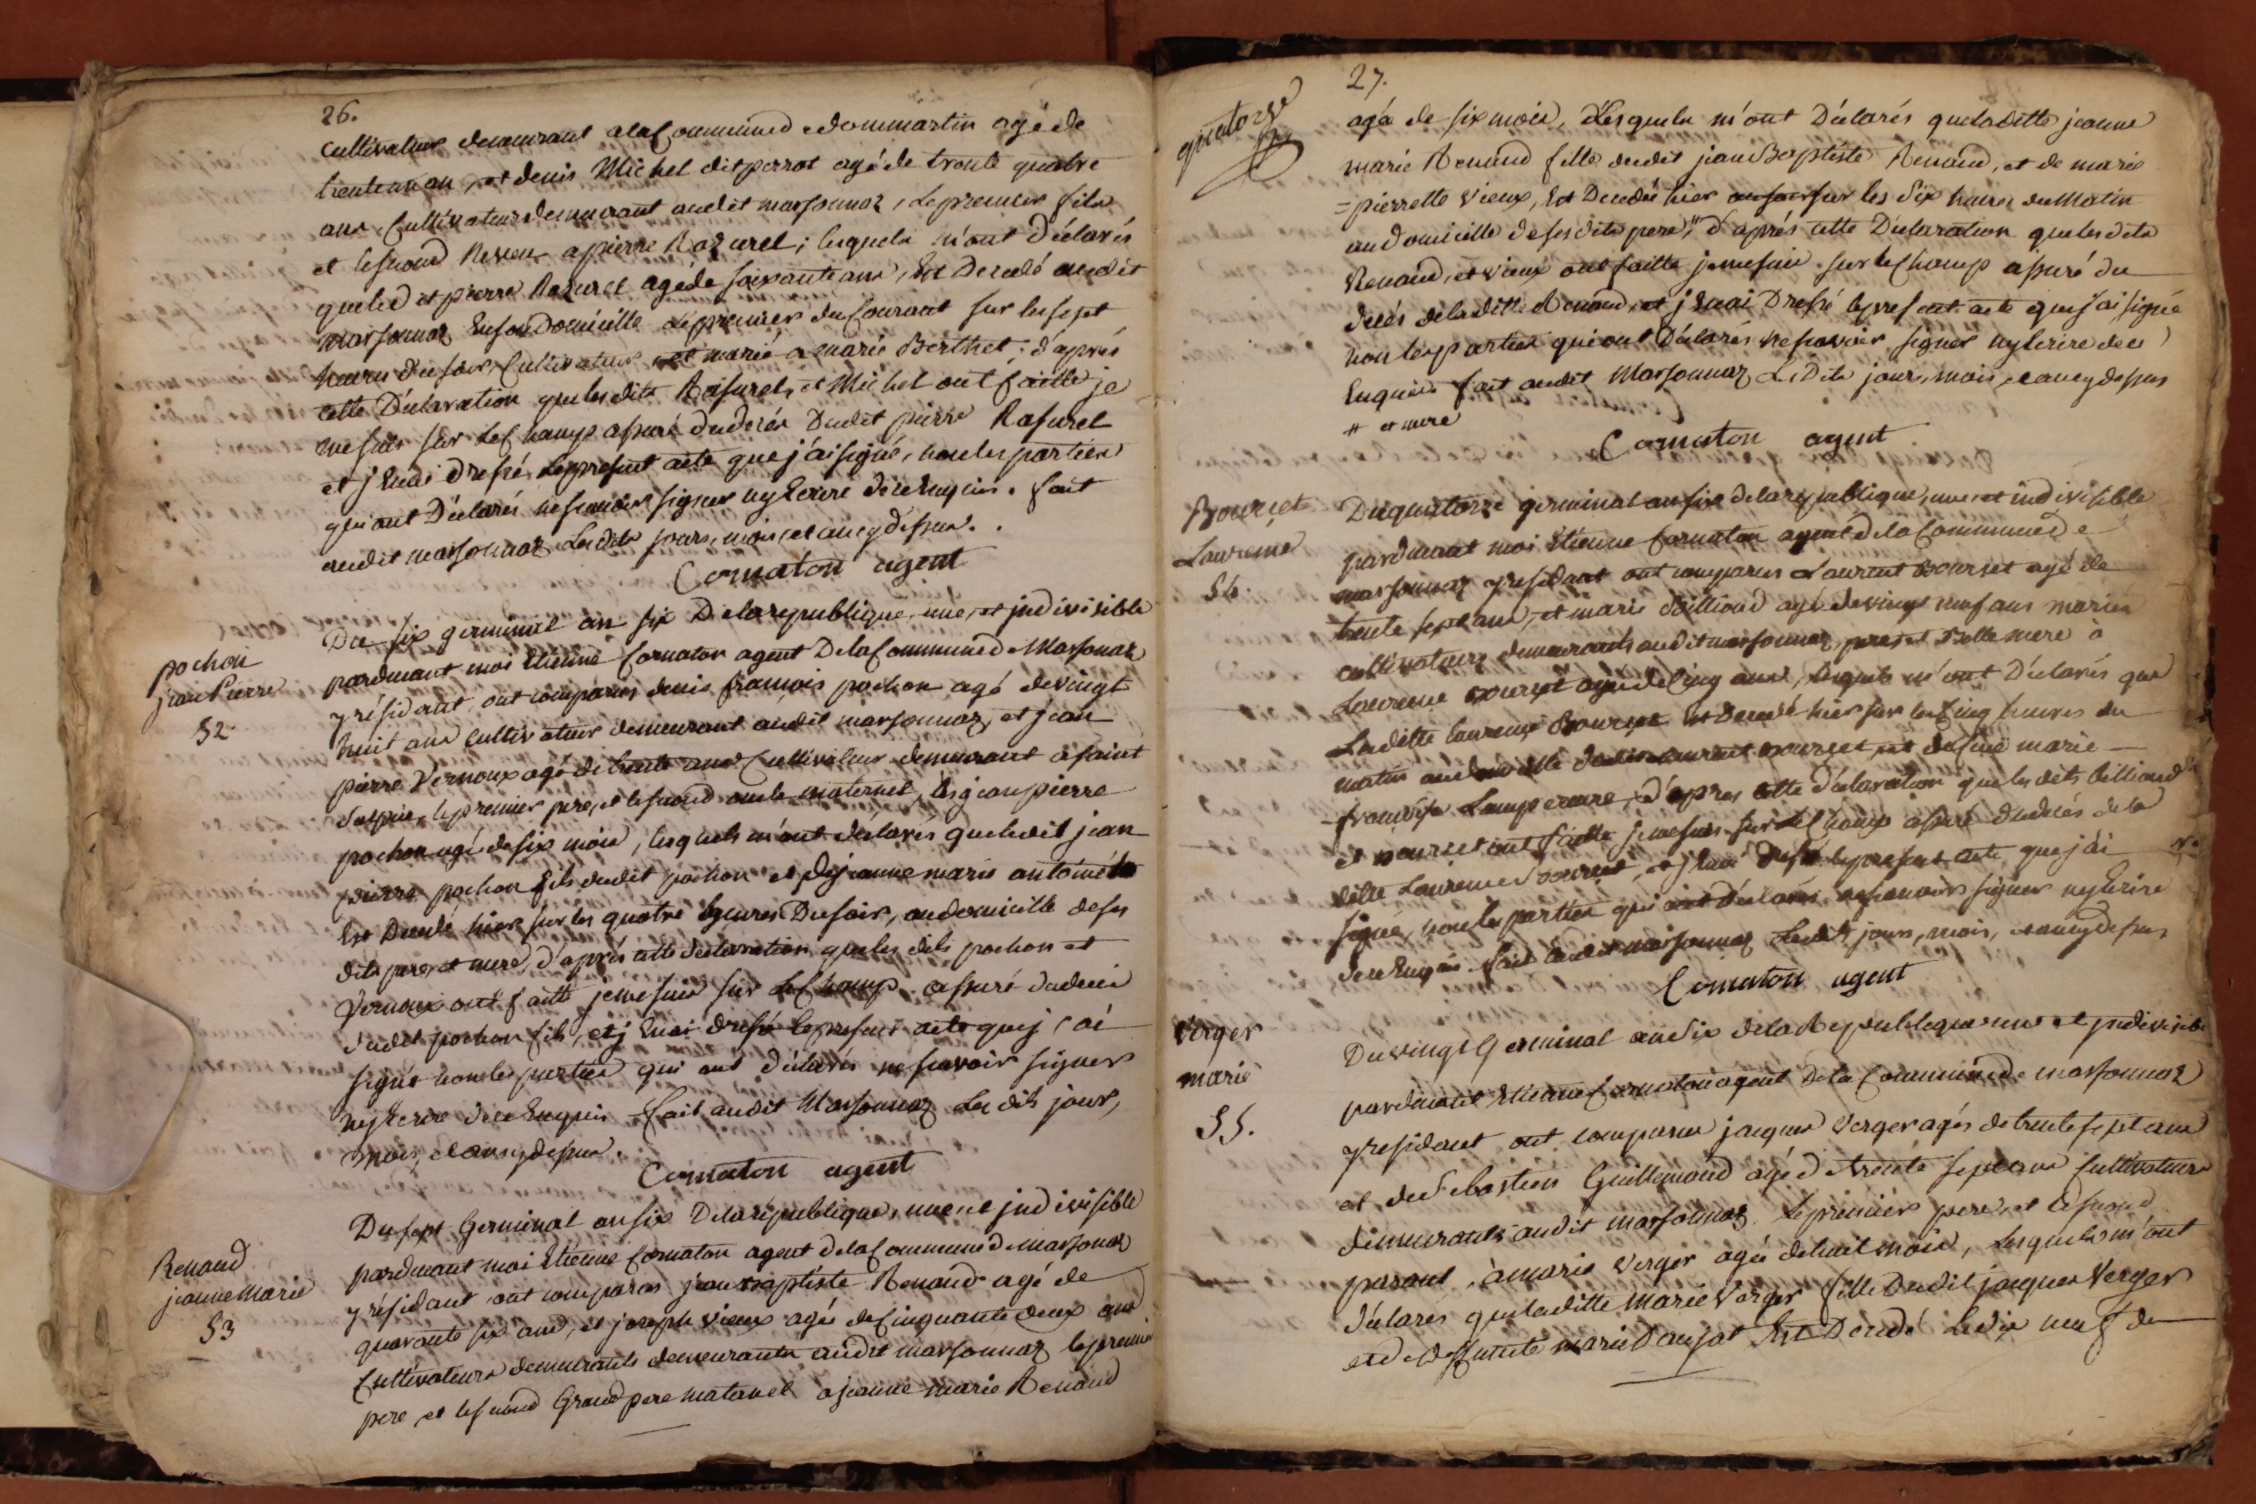 26.
cultivateur demeurant a la Commune de dommartin agé de
trente un an, et denis Michel dit perrot agé de trente quatre
ans, Cultivateurs demeurant audit marsonnaz, le premier fils
et le second Neveu a pierre Razurel; lesquels m'ont déclarés
que led et pierre Razurel agé de soixante ans, Est Decedé audit
marsonnaz En son Domicille le premier du Courant sur les sept
heures du soir, Cultivateur et marié a marie Berthet; d'aprés
cette Déclaration que les dits Rasurel, et Michel ont faitte je
me suis sur le Champ assuré du decés Dudit pierre Rasurel
et j'En ai dressé le present acte que j'ai signé, non les parties
qui ont Déclarés ne scavoir signer ny Ecrire de ce Enquis. fait
audit marsonnaz Les dits jours, mois, et an cy dessus.
Cornaton agent
pochon
jean Pierre
52.
Du six germinal an six De la republique une, et indivisible
pardevant moi Etienne Cornaton agent De la Commune de Marsonaz
y résidant ont comparus denis françois pochon agé de vingt
huit ans cultivateur demeurant audit marsonnaz, et jean
pierre Vernoux agé de trente ans Cultivateur demeurant a saint
Sulpice, le premier pere, et le second oncle maternel, de jean pierre
pochon agé de six mois, lesquels m'ont déclarés que ledit jean
pierre pochon fils dudit pochon et de jeanne marie antoinette
Est Decedé hier sur les quatre heures Du soir, au domicille de ses
dits pere, et mere, d'aprés cette declaration que les dits pochon et
Vernoux ont faitte je me suis sur Le Champ assuré du decès
dudit pochon fils, et j'En ai dressé le present acte que j'ai
signé non les parties qui ont déclarés ne scavoir signer
ny Ecrire de ce Enquis fait audit Marsonnaz Les dits jour,
mois, et an cy dessus.
Cornaton agent
Renaud
jeanne Marie
53
Du sept Germinal an six De la république, une et indivisible
pardevant moi Etienne Cornaton agent de la Commune de Marsonaz
y résidant ont comparus jean Baptiste Renaud agé de
quarante six ans, et joseph vieux agé de Cinquante deux ans
Cultivateurs demeurants demeurants audit marsonnaz le premier
pere, et le second Grand pere maternel a jeanne marie Renaud
quatorze
27.
agée de six mois, Lesquels m'ont Déclarés que laditte jeanne
marie Renaud fille dudit jean Baptiste Renaud, et de marie
= pierrette vieux, Est Decedée hier au soir sur les Dix heures du Matin
au domicille de ses dits pere,# d'aprés cette Déclaration que les dits
Renaud, et vieux ont faitte je me suis sur le Champ assuré du
decés de laditte Renaud, et j'En ai Dressé le present acte que j'ai signé
non les parties qui ont Déclarés ne scavoir signer ny Ecrire de ce
Enquis fait audit Marsonnaz Les Dits jour, mois, et an cy dessus
# et mere
Cornaton agent
Bourcet
Laurence
54.
Du quatorze germinal an six de la republique, une et indivisible
pardevant moi Etienne Cornaton agent de la Commune de
marsonnaz y residant ont comparus Laurent Bourcet agé de
trente sept ans, et marie Billioud agé de vingt neuf ans mariés
cultivateurs demeurants audit marsonnaz, pere, et Belle mere à
Laurence Bourcet agée de Cinq ans, lesquels m'ont Déclarés que
Laditte laurence Bourcet Est Decedé hier sur les Cinq heures du
matin au domicille dudit Laurent Bourcet, et de feue marie
françoise Lampereure, d'apres cette déclaration que les dits Billioud
et Bourcet ont faitte je me suis sur le Champ assuré du decés de la
ditte Laurence Bourcet, et j'En ai Dressé le present acte que j'ai
signé, non les parties qui ont Déclarés ne scavoir signer ny Ecrire
de ce Enquis fait audit marsonnaz Les dits jours, mois, et an cy dessus
Cornaton agent
Verger
marie
55.
Du vingt Germinal an Six de la Republique une et indivisible
pardevant Etienne Cornaton agent De la Commune de marsonnaz
y residant ont comparus jacques Verger agés de trente sept ans
et de Sebastien Guillemaud agé de trente sept ans Cultivateurs
demeurants audit marsonnaz le premier pere, et le second
parent, à marie Verger agée de huit mois, lesquels m'ont
déclarés que laditte Marie Verger fille Dudit jacques Verger
et de deffunte marie Daujat Est Decedé le dix neuf du